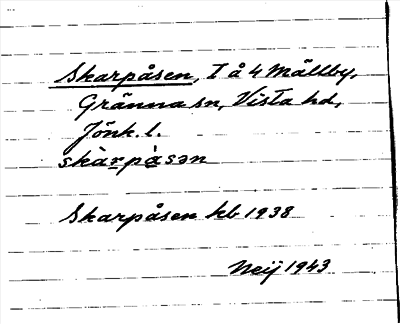 Skarpåsen, I å 4 Mällby,
Gränna sn, Vista hd,
Jönk. l.
skàrpåsən
Skarpåsen kb 1938
Neij 1943